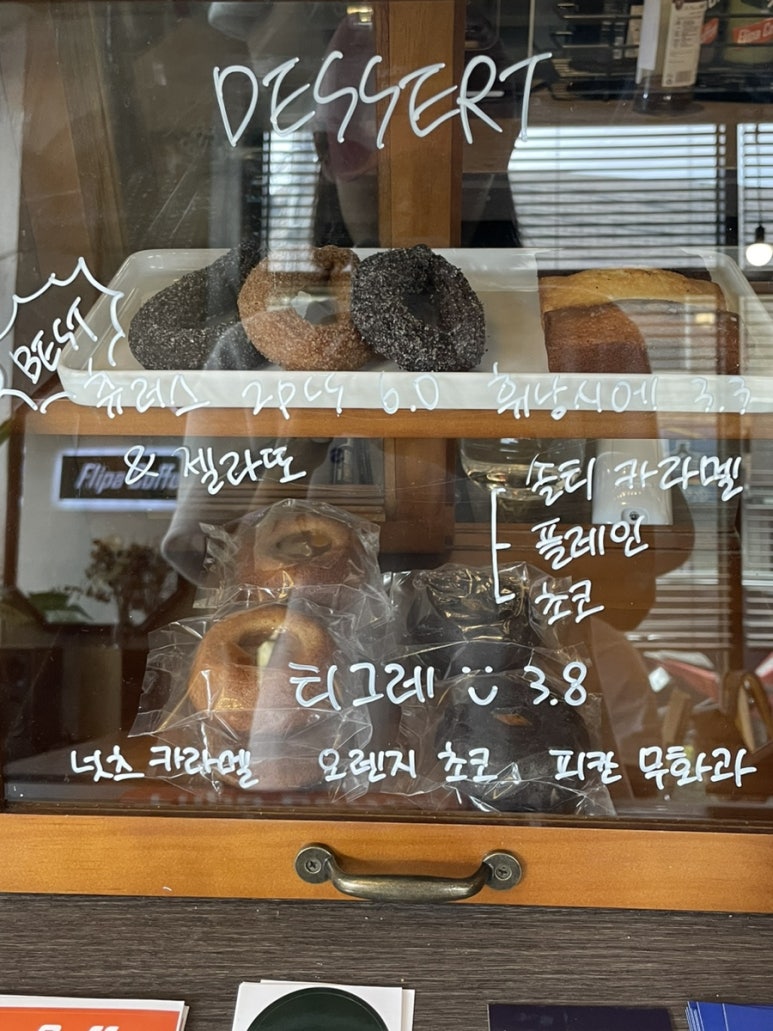 DESSERT
BEST
츄레스 2pcs 6.0
& 젤라또
휘낭시에 3.3
솔티 카라멜
플레인
초코
티그레 3.8
넛츠 카라멜 오렌지 초코 피칸 무화과
Flipa Coffe